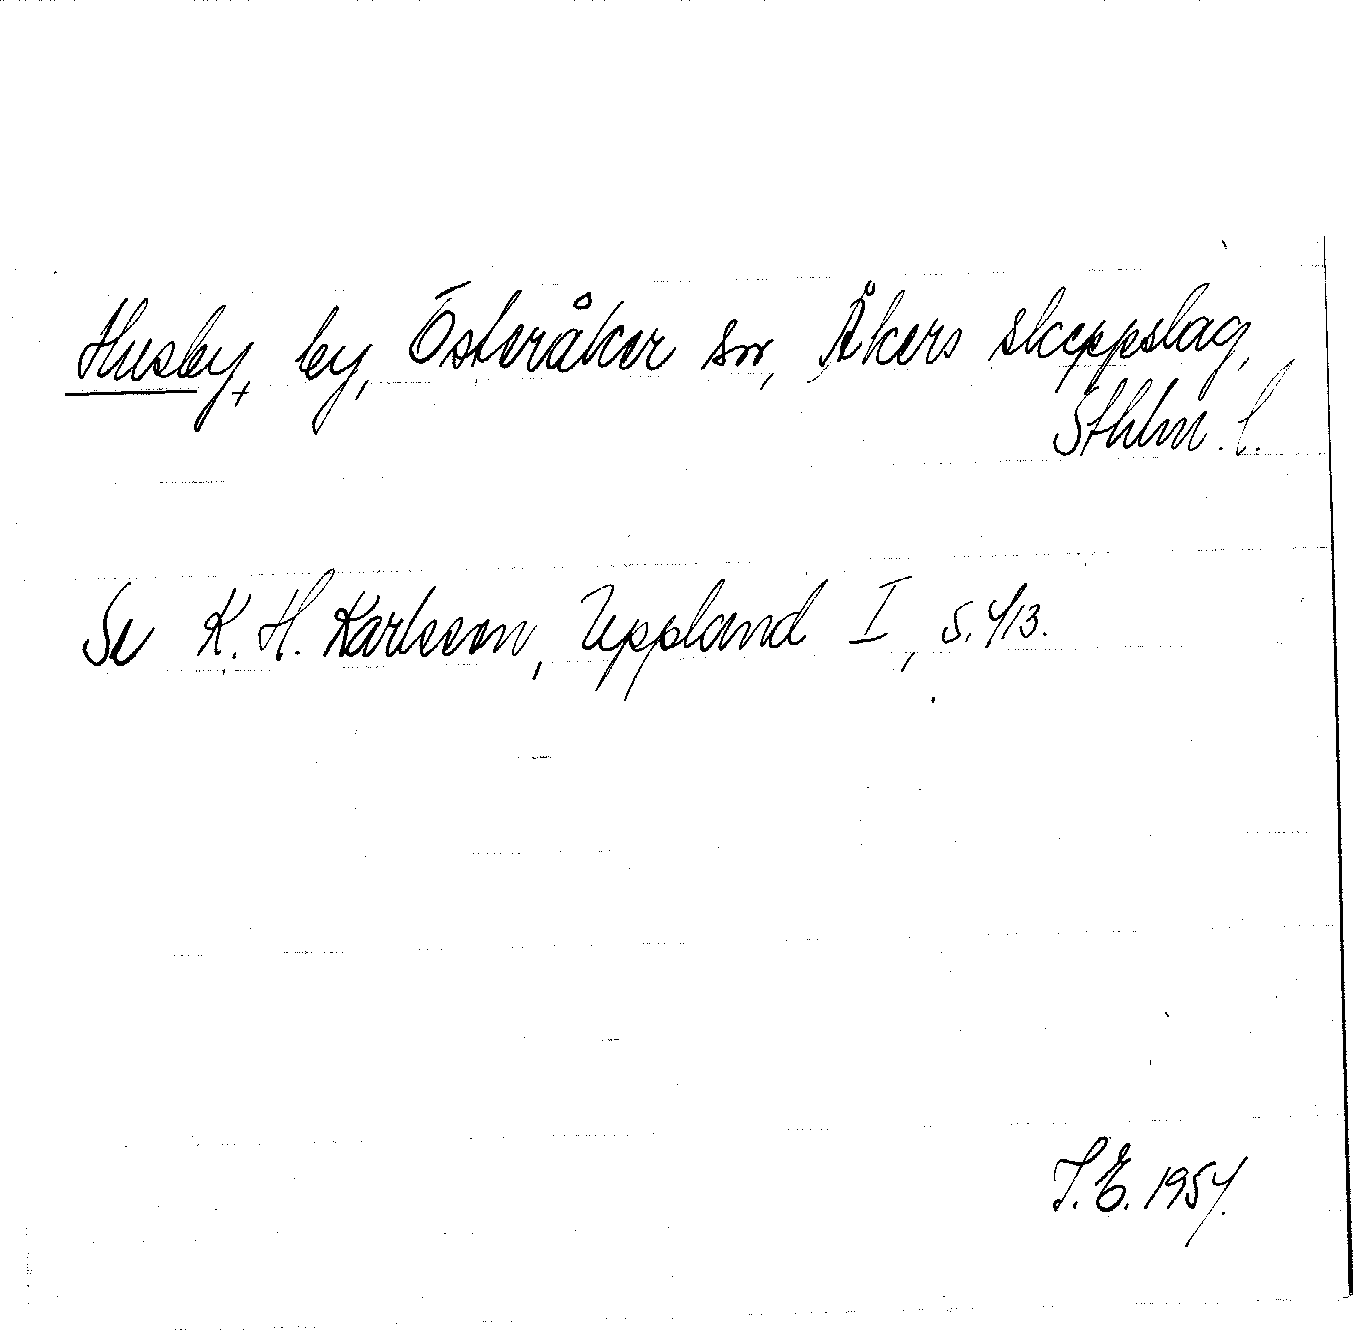 Husby, by, Österåker sn, Åkers skeppslag,
Sthlm. l.
Se K. H. Karlsson, Uppland I, s. 413.
I. E. 1954.